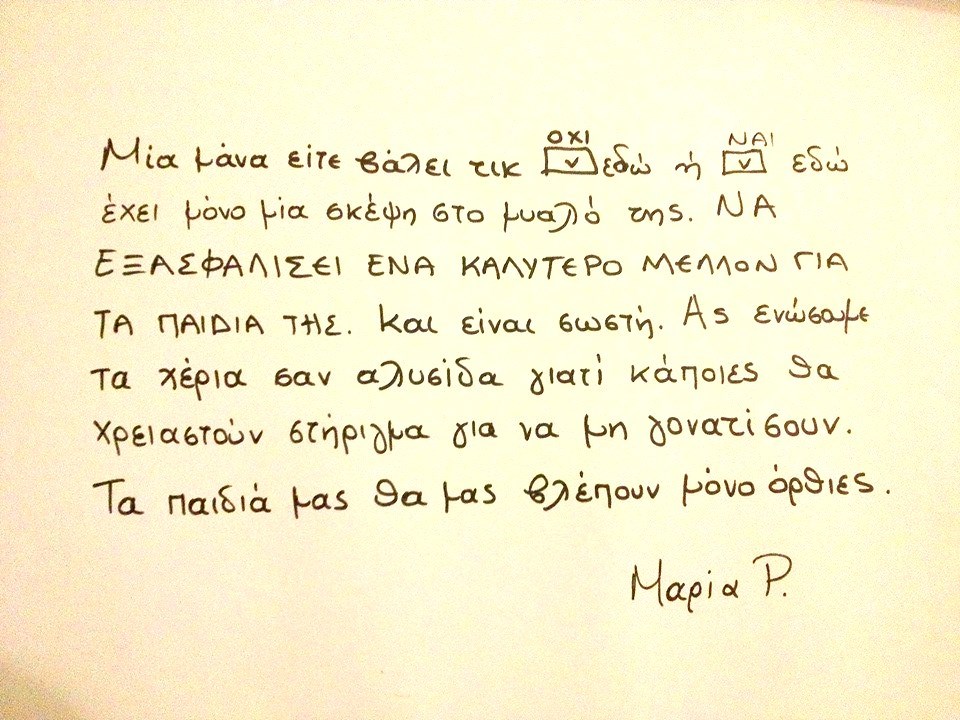 ΟΧΙ ΝΑΙ
Μία μάνα είτε βάλει τικ εδώ ή εδώ
έχει μόνο μία σκέψη στο μυαλό της. ΝΑ
ΕΞΑΣΦΑΛΙΣΕΙ ΕΝΑ ΚΑΛΥΤΕΡΟ ΜΕΛΛΟΝ ΓΙΑ
ΤΑ ΠΑΙΔΙΑ ΤΗΣ. Και είναι σωστή. Ας ενώσωμε
τα χέρια σαν αλυσίδα γιατί κάποιες θα
χρειαστούν στήριγμα για να μη γονατίσουν.
Τα παιδιά μας θα μας βλέπουν μόνο όρθιες.
Μαρία Ρ.